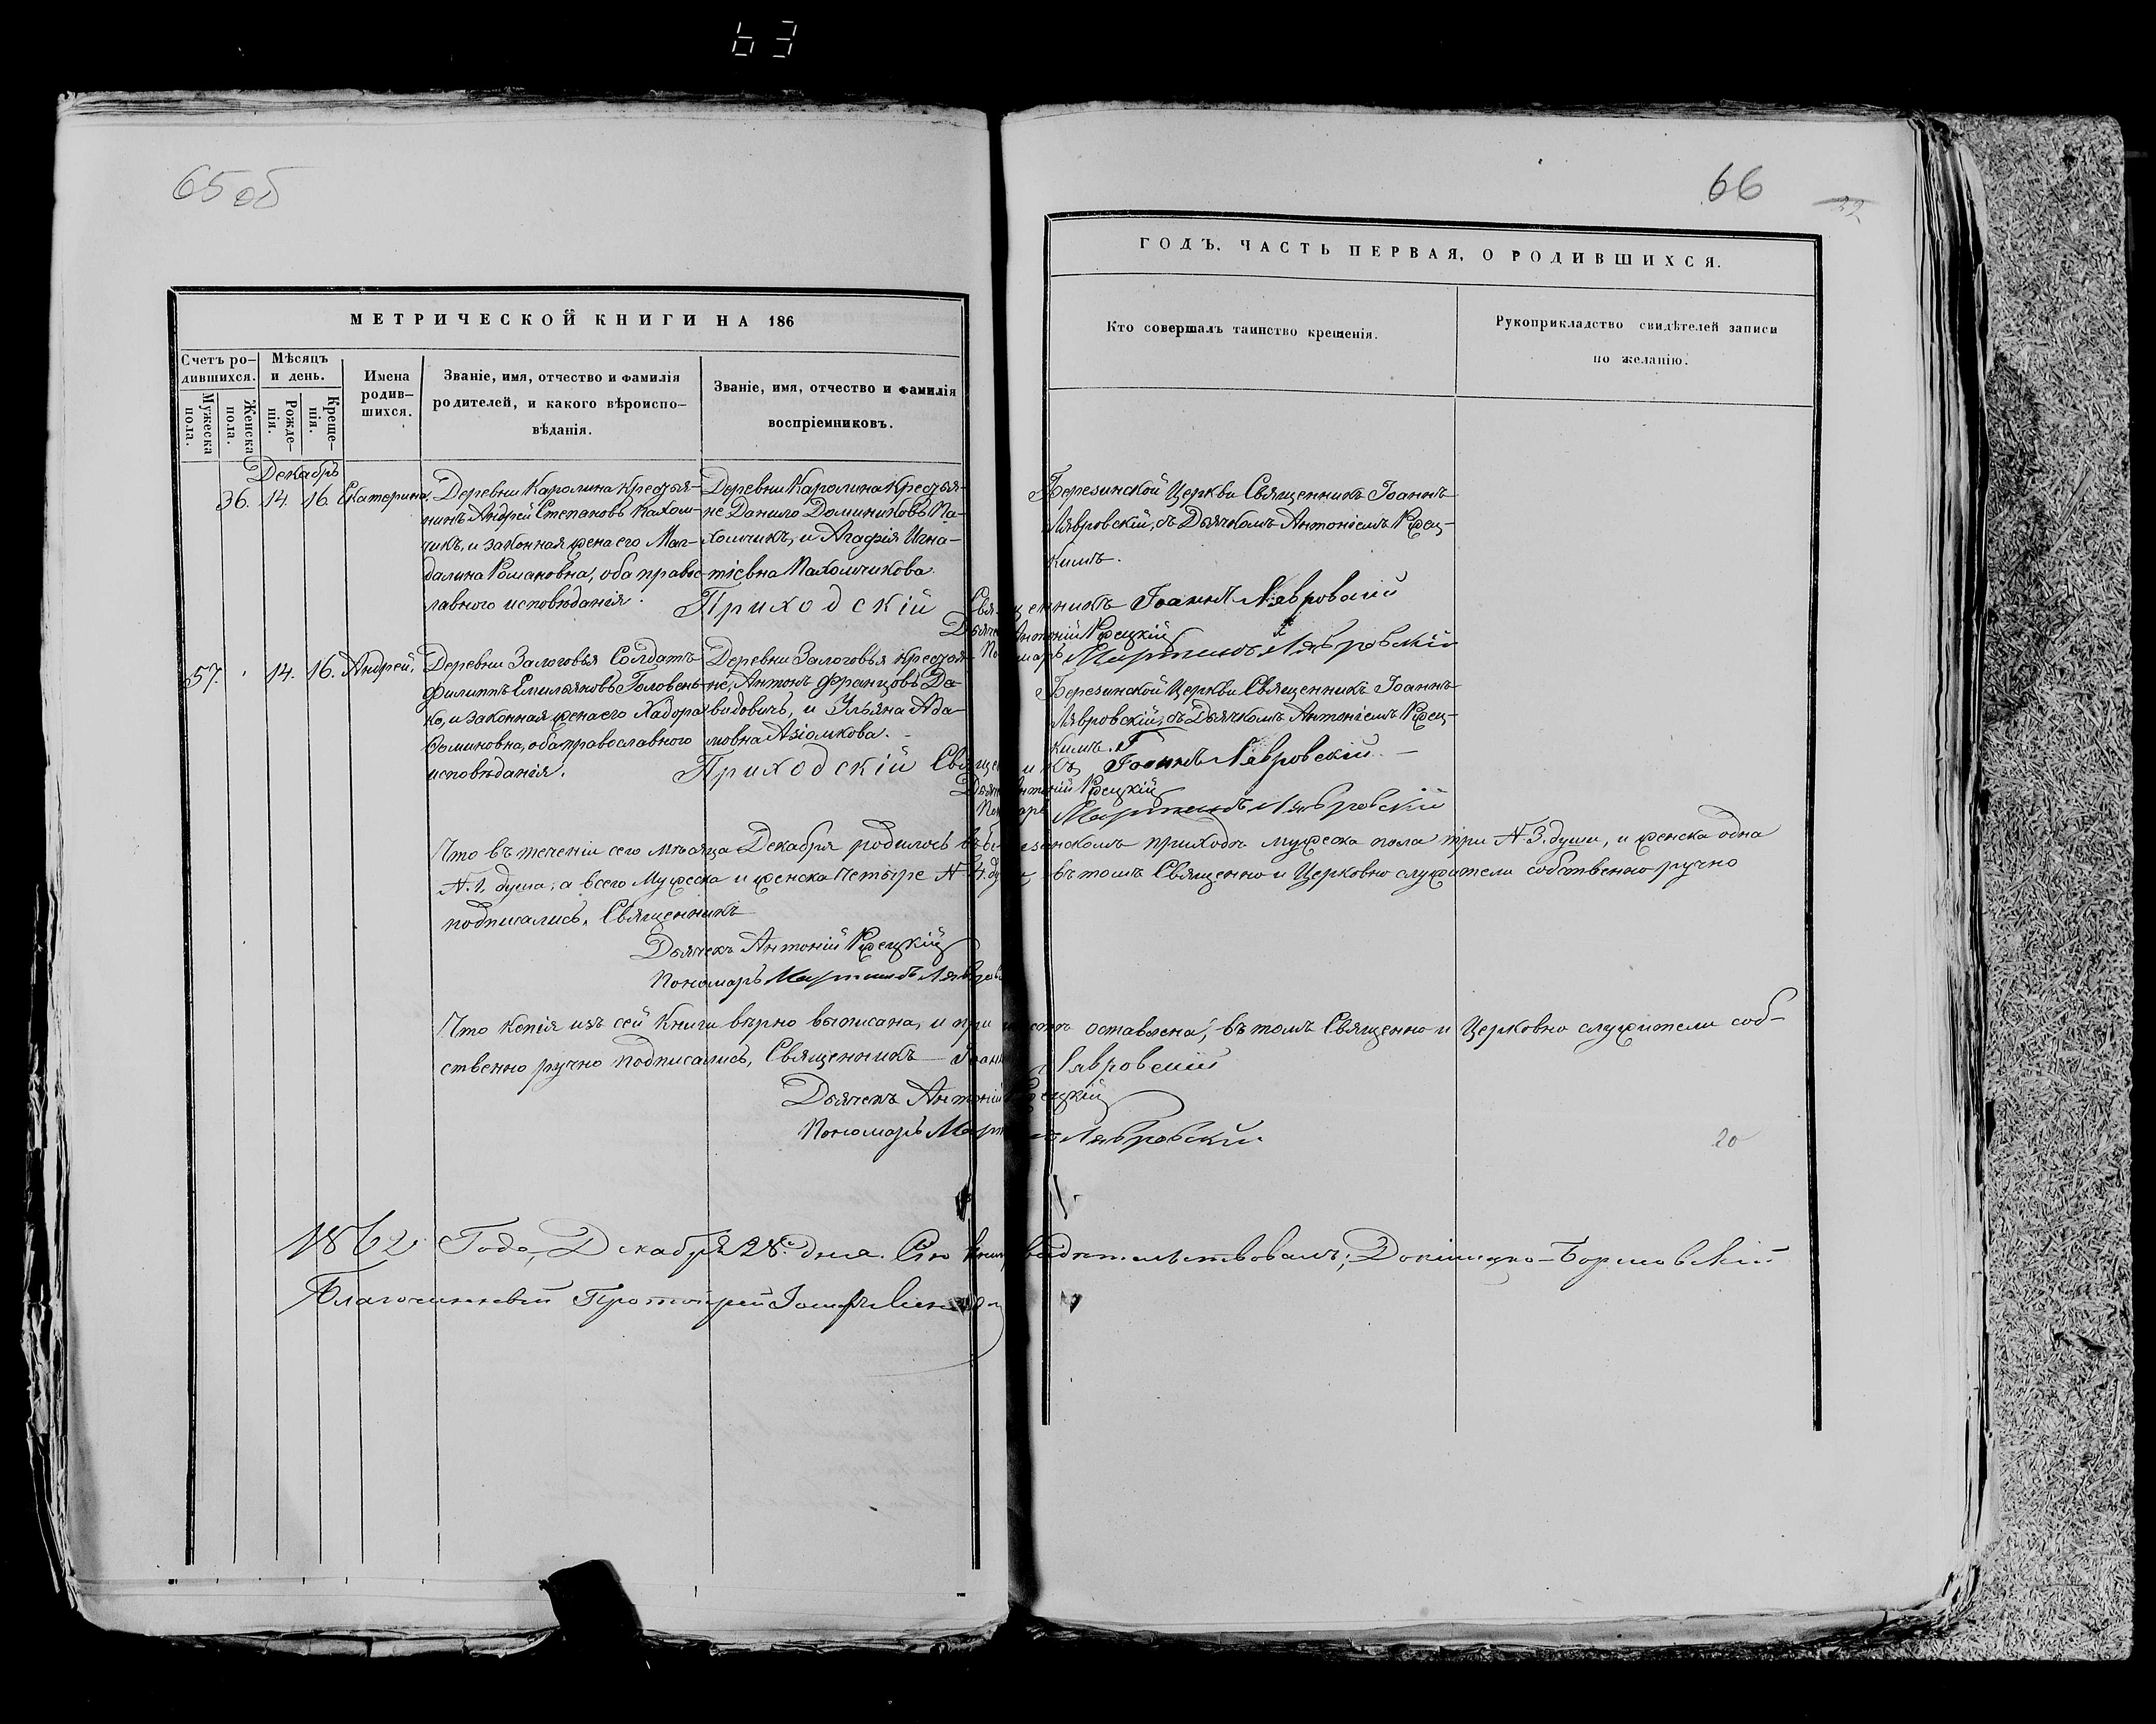 63
65 об
66
32
МЕТРИЧЕСКОЙ КНИГИ НА 186
ГОДЪ. ЧАСТЬ ПЕРВАЯ, О РОДИВШИХСЯ.
Счетъ ро-
дившихся.
Мужеска
пола.
Женска
пола.
Мѣсяцъ
и день.
Рожде-
нія.
Креще-
нія.
Имена
родив-
шихся.
Званіе, имя, отчество и фамилія
родителей, и какого вѣроиспо-
вѣданія.
Званіе, имя, отчество и фамилія
воспріемниковъ.
Кто совершалъ таинство крещенія.
Рукоприкладство свидѣтелей записи
по желанію.
Декабрь
36. 14. 16. Екатерина.
Деревни Каролина Крестья-
нинъ Андрей Степановъ Пахом-
чикъ, и законная жена его Маг-
далина Романовна, оба правос-
лавного исповѣданія.
Деревни Каролина Крестья-
не Данило Доминиковъ Па-
хомчикъ, и Агафія Игна-
тіевна Пахомчикова.
Березинской Церкви Священникъ Іоаннъ
Лявровскій, съ Дьячкомъ Антоніемъ Ржец-
кимъ.
Приходскій Священникъ Іоаннъ Лявровскій
Дьячекъ Антоній Ржецкій
Пономарь Мартинъ Лявровскій
57. 14. 16. Андрей.
Деревни Залоговья Солдатъ
Филиппъ Емильяновъ Головень-
ко, и законная жена его Хадора
Осминовна, оба православного
исповѣданія.
Деревни Залоговья Крестья-
не, Антонъ Францовъ Да-
видовичъ, и Ульяна Ада-
мовна Азіомкова.
Березинской Церкви Священникъ Іоаннъ
Лявровскій, съ Дьячкомъ Антоніемъ Ржец-
кимъ.
Приходскій Священникъ Іоаннъ Лявровскій
Дьячекъ Антоній Ржецкій
Пономарь Мартинъ Лявровскій
Что въ теченіи сего мѣсяца Декабря родилось въ Березинскомъ приходѣ мужеска пола три №3. души, и женска одна
№.1. душа, а всего Мужеска и женска Четыре №4. въ томъ Священно и Церковно служители собственно ручно
подписались, Священникъ
Дьячекъ Антоній Ржецкій
Пономарь Мартинъ Лявровс
Что Копія изъ сей Книги вѣрно выписана, и при оставлена, въ томъ Священно и Церковно служители соб-
ственно ручно подписались, Священникъ Іоаннъ Лявровскій
Дьячекъ Антоній Ржецкій
Пономарь Мартинъ Лявровскій
20
1862 Года, Декабря 28. дня. Сію книгу свидѣтельствовалъ, Докшицко-Борисовскій
Благочинный Протоіерей Іосифъ